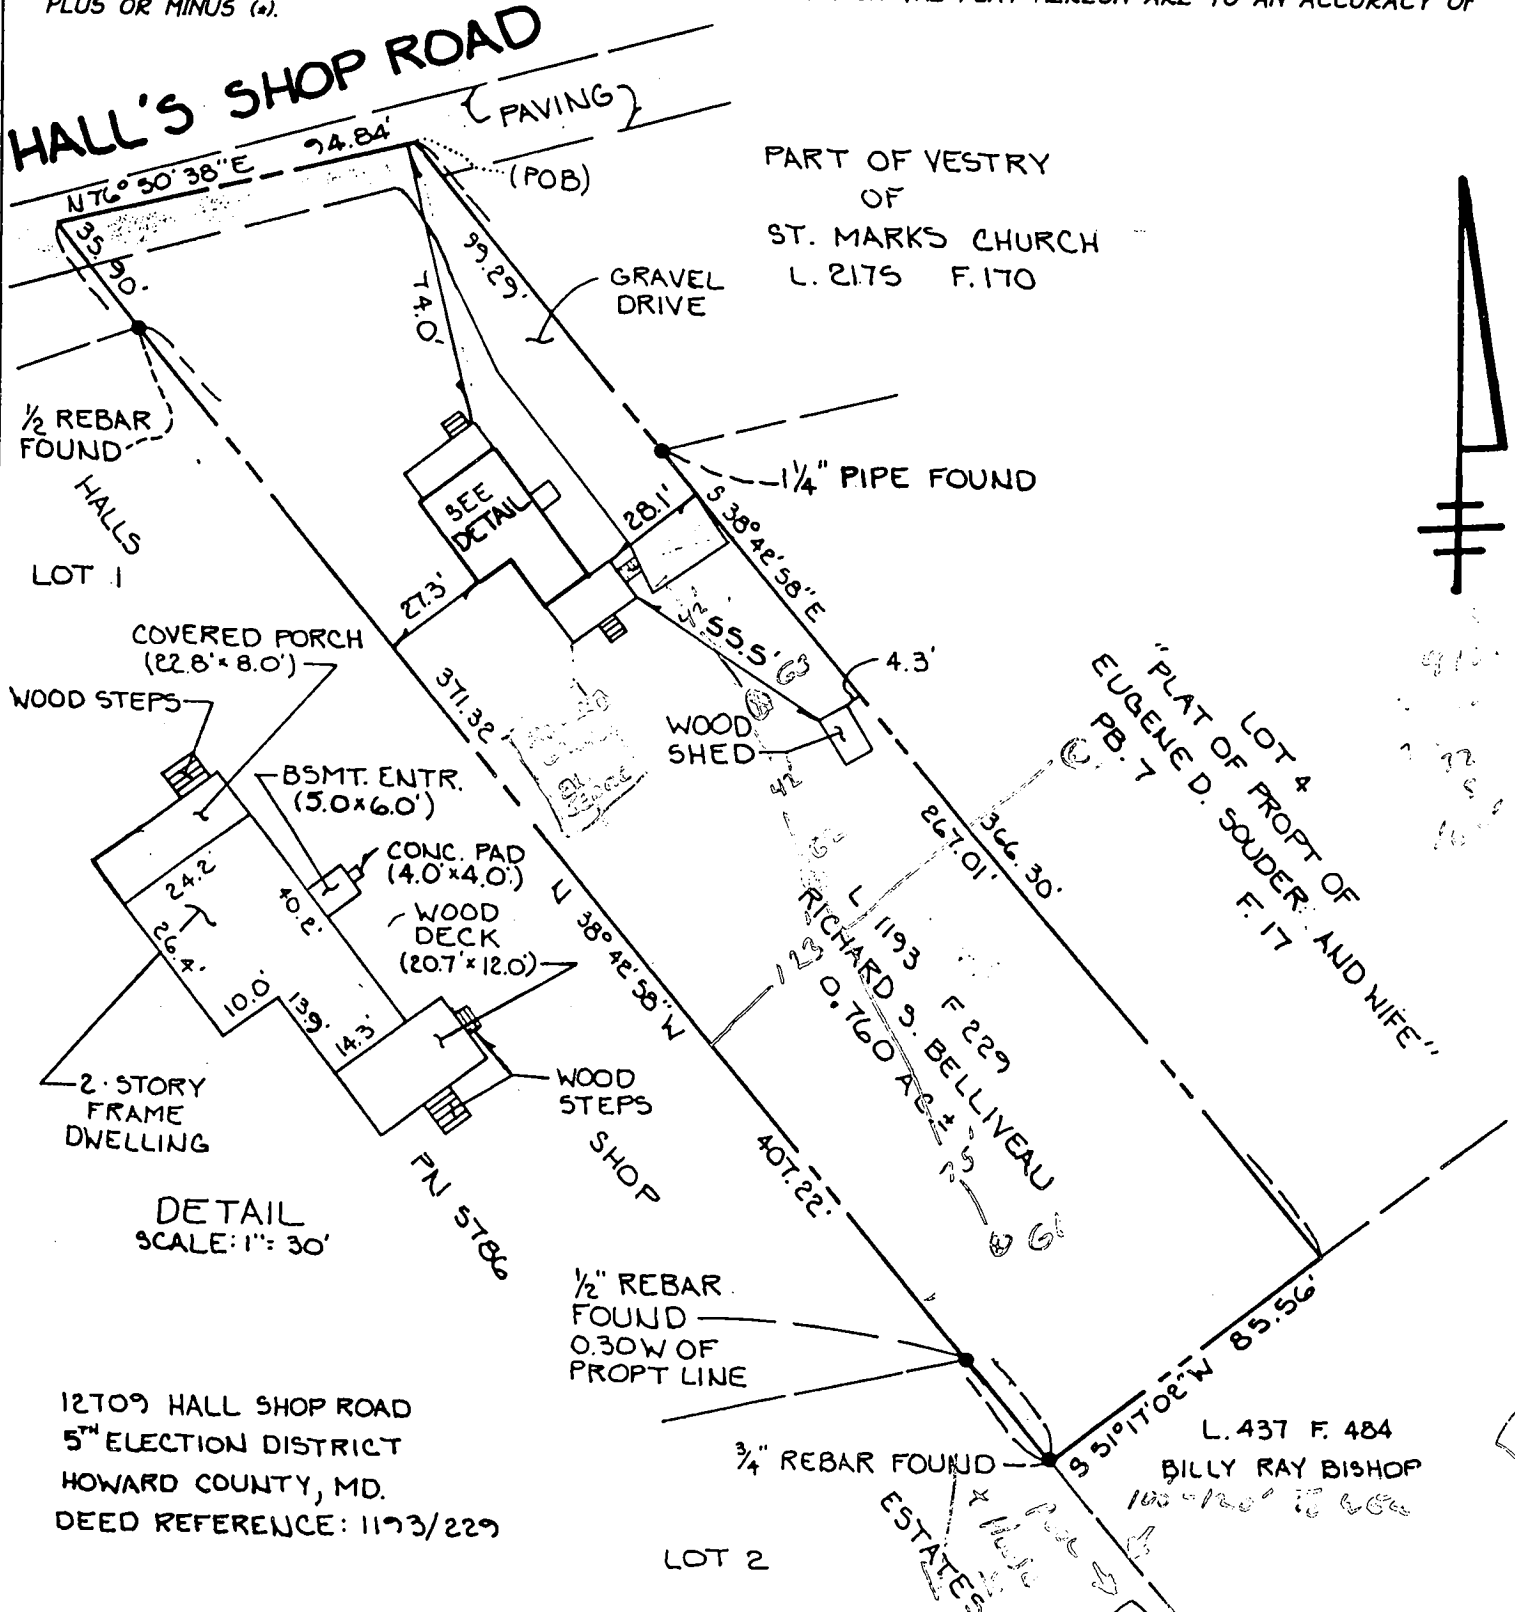 PLUS OR MINUS (±).
HALL'S SHOP ROAD
{PAVING}
N 76° 30' 38" E 94.84'
(POB)
PART OF VESTRY
OF
ST. MARKS CHURCH
L. 2175 F. 170
35.90'
99.29'
74.0'
GRAVEL
DRIVE
1/2 REBAR
FOUND
1 1/4" PIPE FOUND
HALLS
LOT 1
SEE
DETAIL
28.1'
S 38° 42' 58" E
27.3'
55.5'
4.3'
WOOD
SHED
371.32'
COVERED PORCH
(22.8' x 8.0')
WOOD STEPS
BSMT. ENTR.
(5.0 x 6.0')
CONC. PAD
(4.0' x 4.0')
WOOD
DECK
(20.7' x 12.0')
24.2'
40.2'
26.4'
10.0'
13.9'
14.3'
2-STORY
FRAME
DWELLING
WOOD
STEPS
DETAIL
SCALE: 1" = 30'
N 38° 42' 58" W
366.30'
267.01'
LOT 4
"PLAT OF PROPT OF
EUGENE D. SOUDER AND WIFE"
PB. 7 F. 17
L 1193 F 229
RICHARD S. BELLIVEAU
0.760 AC. ±
123
42
PN 5786
SHOP
407.22'
1/2" REBAR
FOUND
0.30 W OF
PROPT LINE
85.56'
S 51° 17' 02" W
3/4" REBAR FOUND
L. 437 F. 484
BILLY RAY BISHOP
12709 HALL SHOP ROAD
5TH ELECTION DISTRICT
HOWARD COUNTY, MD.
DEED REFERENCE: 1193/229
LOT 2
ESTATES